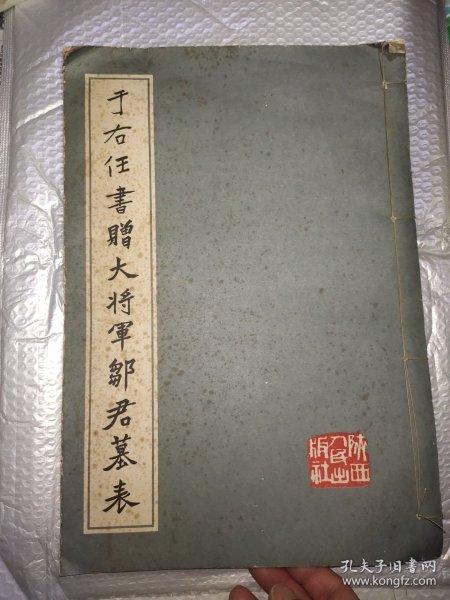 于右任書贈大將軍鄒君墓表
陝西
人民出
版社
孔夫子旧书网
www.kongfz.com